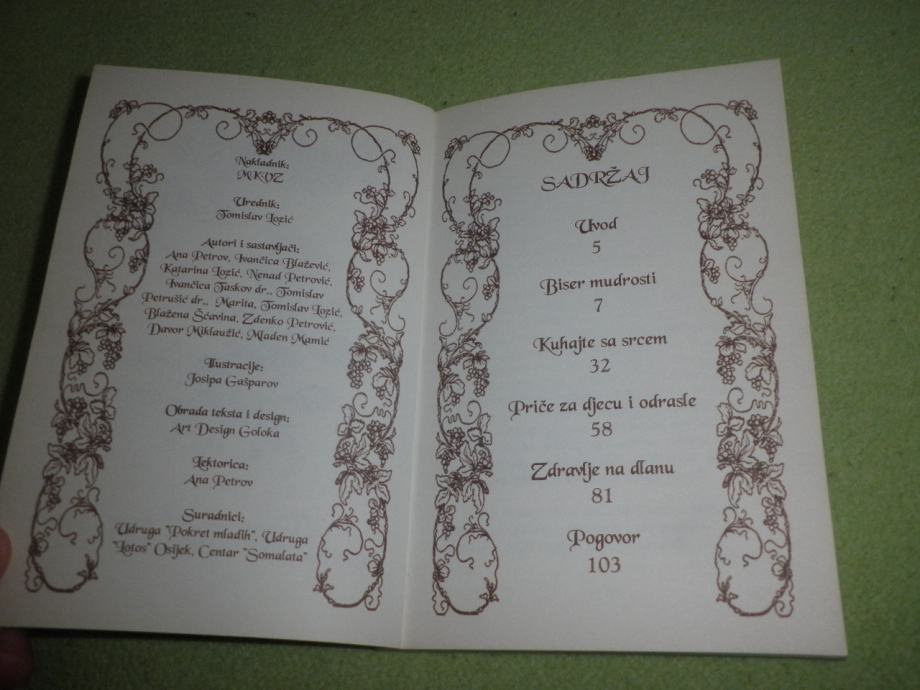 Nakladnik:
MKVZ
Urednik:
Tomislav Lozić
Autori i sastavljači:
Ana Petrov, Ivančica Blažević,
Katarina Lozić, Nenad Petrović,
Ivančica Taskov dr., Tomislav
Petrušić dr., Marita, Tomislav Lozić,
Blažena Šćavina, Zdenko Petrović,
Davor Miklaužić, Mladen Mamić
Ilustracije:
Josipa Gašparov
Obrada teksta i design:
Art Design Goloka
Lektorica:
Ana Petrov
Suradnici:
Udruga "Pokret mladih", Udruga
"Lotos" Osijek, Centar "Somalata"
SADRŽAJ
Uvod
5
Biser mudrosti
7
Kuhajte sa srcem
32
Priče za djecu i odrasle
58
Zdravlje na dlanu
81
Pogovor
103